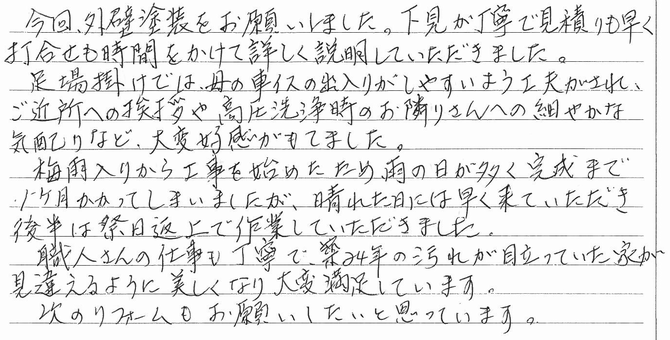 今回、外壁塗装をお願いしました。下見が丁寧で見積りも早く
打合せも時間をかけて詳しく説明していただきました。
足場掛けでは、母の車イスの出入りがしやすいよう工夫がされ、
ご近所への挨拶や高圧洗浄時のお隣りさんへの細やかな
気配りなど、大変好感がもてました。
梅雨入りから工事を始めたため、雨の日が多く完成まで
1ヶ月かかってしまいましたが、晴れた日には早く来ていただき
後半は祭日返上で作業していただきました。
職人さんの仕事も丁寧で、築24年の汚れが目立っていた家が
見違えるように美しくなり大変満足しています。
次のリフォームもお願いしたいと思っています。